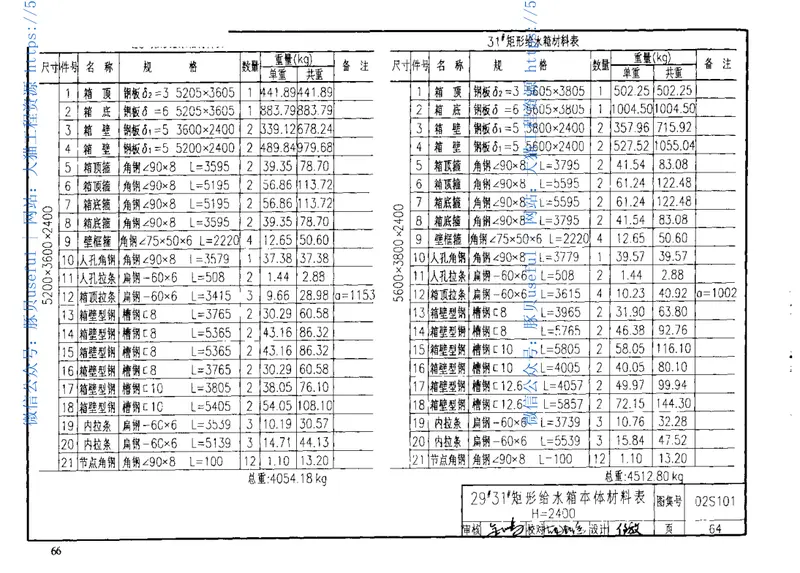 31#矩形给水箱材料表
尺寸 件号 名 称 规 格 数量 重量(kg) 备 注
单重 共重
5200×3600×2400
1 箱 顶 钢板δ2=3 5205×3605 1 441.89 441.89
2 箱 底 钢板δ =6 5205×3605 1 883.79 883.79
3 箱 壁 钢板δ1=5 3600×2400 2 339.12 678.24
4 箱 壁 钢板δ1=5 5200×2400 2 489.84 979.68
5 箱顶箍 角钢∠90×8 L=3595 2 39.35 78.70
6 箱顶箍 角钢∠90×8 L=5195 2 56.86 113.72
7 箱底箍 角钢∠90×8 L=5195 2 56.86 113.72
8 箱底箍 角钢∠90×8 L=3595 2 39.35 78.70
9 壁框箍 角钢∠75×50×6 L=2220 4 12.65 50.60
10 人孔角钢 角钢∠90×8 L=3579 1 37.38 37.38
11 人孔拉条 扁钢-60×6 L=508 2 1.44 2.88
12 箱顶拉条 扁钢-60×6 L=3415 3 9.66 28.98 a=1153
13 箱壁型钢 槽钢⊏8 L=3765 2 30.29 60.58
14 箱壁型钢 槽钢⊏8 L=5365 2 43.16 86.32
15 箱壁型钢 槽钢⊏8 L=5365 2 43.16 86.32
16 箱壁型钢 槽钢⊏8 L=3765 2 30.29 60.58
17 箱壁型钢 槽钢⊏10 L=3805 2 38.05 76.10
18 箱壁型钢 槽钢⊏10 L=5405 2 54.05 108.10
19 内拉条 扁钢-60×6 L=3539 3 10.19 30.57
20 内拉条 扁钢-60×6 L=5139 3 14.71 44.13
21 节点角钢 角钢∠90×8 L=100 12 1.10 13.20
总重:4054.18kg
尺寸 件号 名 称 规 格 数量 重量(kg) 备 注
单重 共重
5600×3800×2400
1 箱 顶 钢板δ2=3 5605×3805 1 502.25 502.25
2 箱 底 钢板δ =6 5605×3805 1 1004.50 1004.50
3 箱 壁 钢板δ1=5 3800×2400 2 357.96 715.92
4 箱 壁 钢板δ1=5 5600×2400 2 527.52 1055.04
5 箱顶箍 角钢∠90×8 L=3795 2 41.54 83.08
6 箱顶箍 角钢∠90×8 L=5595 2 61.24 122.48
7 箱底箍 角钢∠90×8 L=5595 2 61.24 122.48
8 箱底箍 角钢∠90×8 L=3795 2 41.54 83.08
9 壁框箍 角钢∠75×50×6 L=2220 4 12.65 50.60
10 人孔角钢 角钢∠90×8 L=3779 1 39.57 39.57
11 人孔拉条 扁钢-60×6 L=508 2 1.44 2.88
12 箱顶拉条 扁钢-60×6 L=3615 4 10.23 40.92 a=1002
13 箱壁型钢 槽钢⊏8 L=3965 2 31.90 63.80
14 箱壁型钢 槽钢⊏8 L=5765 2 46.38 92.76
15 箱壁型钢 槽钢⊏10 L=5805 2 58.05 116.10
16 箱壁型钢 槽钢⊏10 L=4005 2 40.05 80.10
17 箱壁型钢 槽钢⊏12.6 L=4057 2 49.97 99.94
18 箱壁型钢 槽钢⊏12.6 L=5857 2 72.15 144.30
19 内拉条 扁钢-60×6 L=3739 3 10.76 32.28
20 内拉条 扁钢-60×6 L=5539 3 15.84 47.52
21 节点角钢 角钢∠90×8 L=100 12 1.10 13.20
总重:4512.80kg
29#31#矩形给水箱本体材料表
H=2400
图集号 02S101
审核 校对 设计 页 64
66